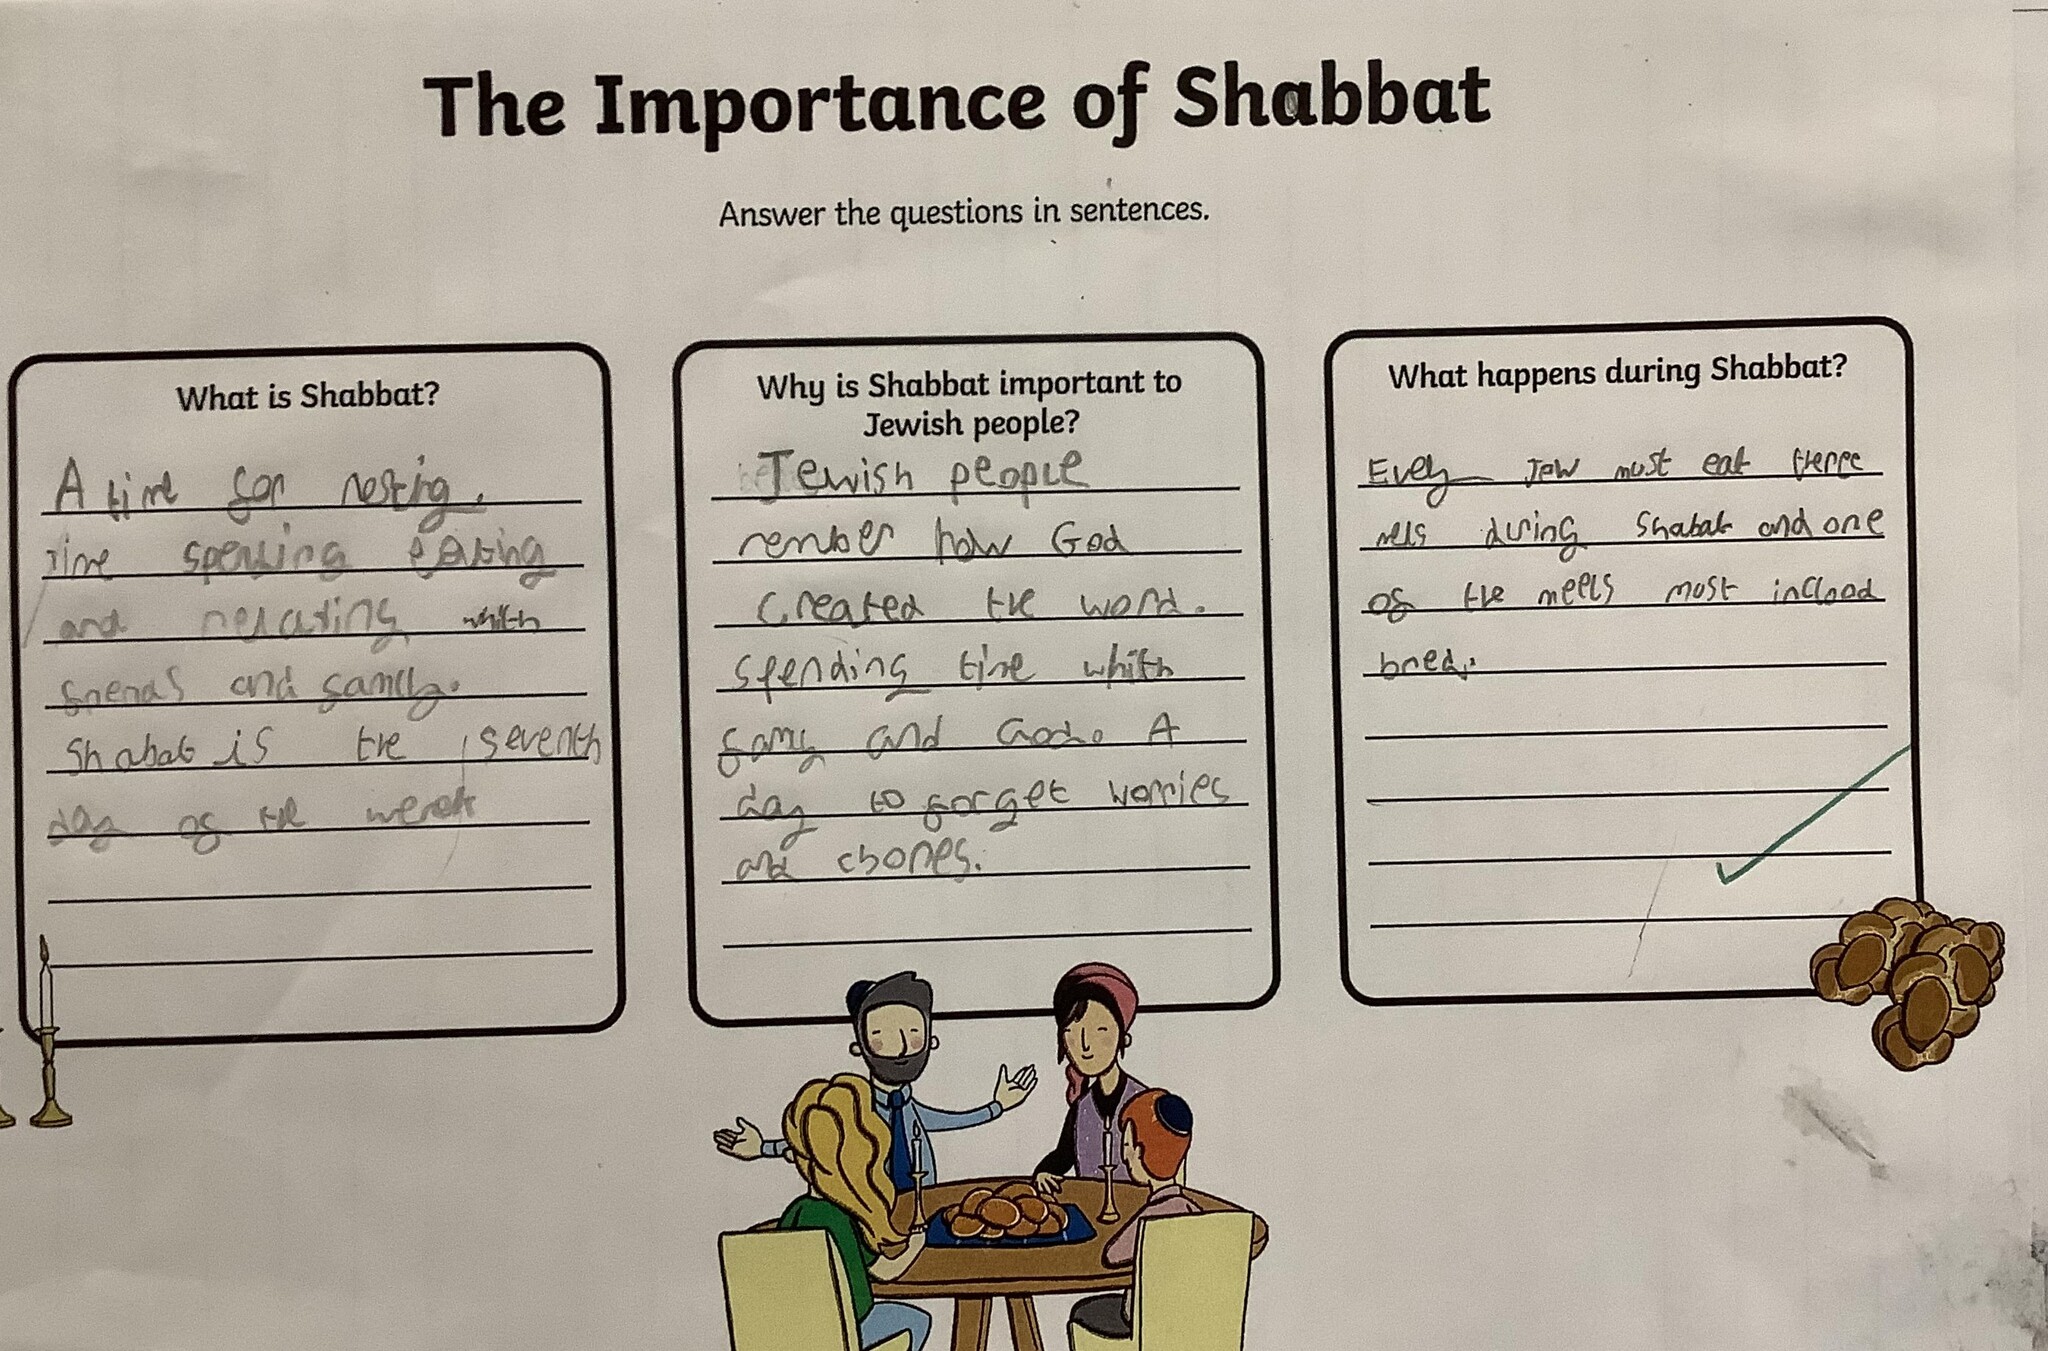 The Importance of Shabbat
Answer the questions in sentences.
What is Shabbat?
A time for resting.
Time spending eating
and relaxting whith
friends and family.
Shabat is the seventh
day of the week
Why is Shabbat important to
Jewish people?
Jewish people
rember how God
created the word.
spending time whith
famy and God. A
day to forget worries
and chores.
What happens during Shabbat?
Every Jew must eat
mels during Shabat and one
of the meels most inclood
bred.